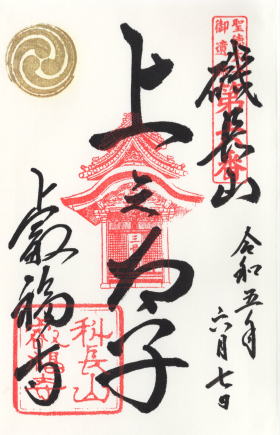 磯長山
上之太子
上叡福寺
令和五年
六月七日
科長山
叡福寺